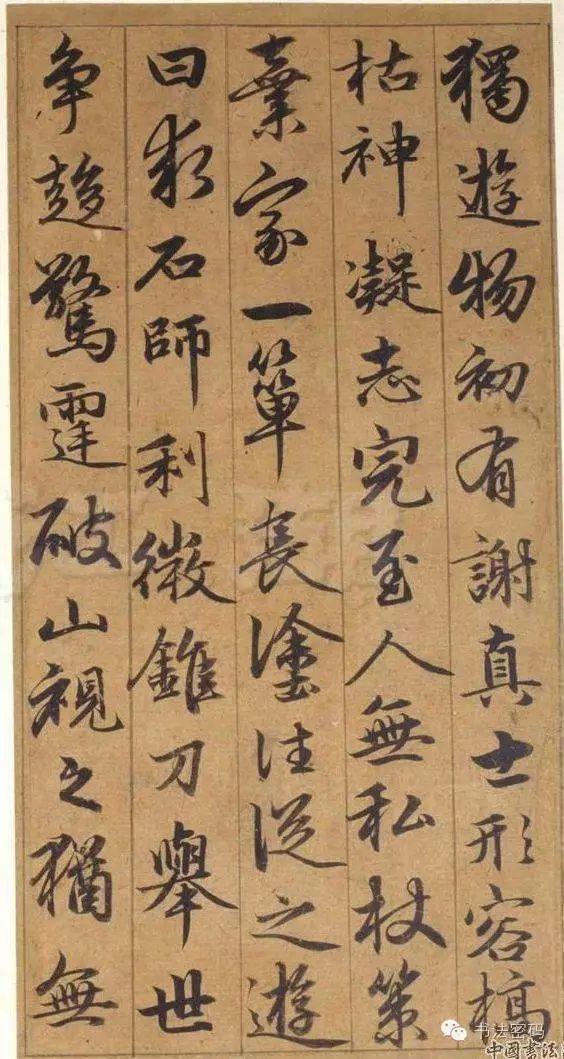 獨遊物初有謝真士形容槁
枯神凝志完至人無私杖策
棄家一簞長塗往從之遊
曰求石師利微錐刀舉世
争趍驚霆破山視之猶無
书法密码
中国書法